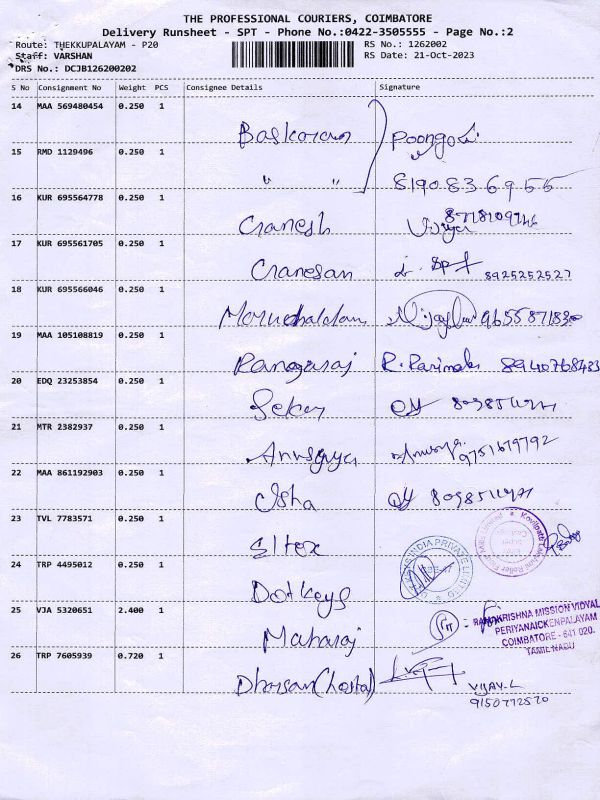 THE PROFESSIONAL COURIERS, COIMBATORE
Delivery Runsheet - SPT - Phone No.:0422-3505555 - Page No.:2
Route: THEKKUPALAYAM - P20 RS No.: 1262002
Staff: VARSHAN RS Date: 21-Oct-2023
DRS No.: DCJB126200202
S No Consignment No Weight PCS Consignee Details Signature
14 MAA 569480454 0.250 1
Baskaran
15 RMD 1129496 0.250 1
" " 8190836955
16 KUR 695564778 0.250 1
Cranesh
17 KUR 695561705 0.250 1
Cranesan 8925252527
18 KUR 695566046 0.250 1
19 MAA 105108819 0.250 1
Rangaraj R. Parimala
20 EDQ 23253854 0.250 1
Seker
21 MTR 2382937 0.250 1
Anusuya Anusuya 9751679792
22 MAA 861192903 0.250 1
Usha
23 TVL 7783571 0.250 1
Eltex
24 TRP 4495012 0.250 1
INDIA PRIVATE LIMITED
Dotkeys
25 VJA 5320651 2.400 1
RAMAKRISHNA MISSION VIDYAL
PERIYANAICKENPALAYAM
COIMBATORE - 641 020.
TAMIL NADU
Maharaj
26 TRP 7605939 0.720 1
Dharsan (hostal) VIJAY.L
9150772570